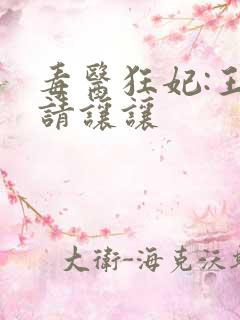 毒醫狂妃:王
請讓讓
大衛-海克沃